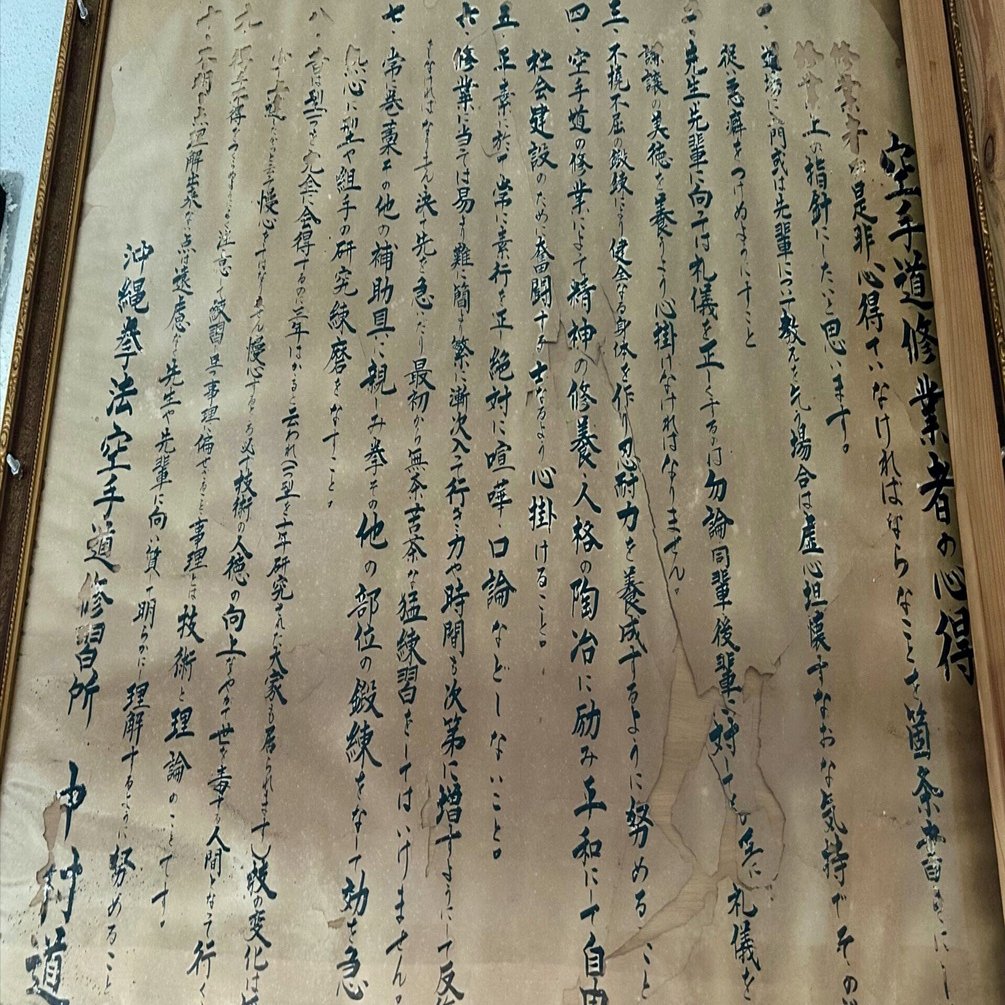 空手道修業者の心得
修業者が是非心得ていなければならないことを箇条書きにし
修業上の指針にしたいと思います。
一、道場に入門或は先輩について教えを乞う場合は虚心坦懐すなおな気持でその
従い悪癖をつけぬようにすこと
二、先生先輩に向っては礼儀を正しくするは勿論同輩後輩に対しても互に礼儀を
謙譲の美徳を養うよう心掛けなければなりません。
三、不撓不屈の鍛練により健全なる身体を作り忍耐力を養成するように努めること
四、空手道の修業によって精神の修養、人格の陶冶に励み平和にして自由
社会建設のために奮闘する士なるよう心掛けること。
五、平素に於て常に素行を正し絶対に喧嘩、口論などしないこと。
六、修業に当っては易より難に簡より繁に漸次入って行き力や時間も次第に増すようにして反
ければなりません決して先を急いだり最初から無茶苦茶な猛練習をしてはいけません。
七、常に巻藁其の他の補助具に親しみ拳その他の部位の鍛練をなして効を急
熱心に型や組手の研究練磨をなすこと。
八、昔は型一つを完全に会得するのに三年はかかると云われ(一つ型を十年研究された大家も居られます)段の変化は
上達したからと云って慢心をしてはなりません慢心する者は必ず技術の人徳の向上をやがて世を毒する人間となって行く
九、得手不得手をつくらぬように注意して練習し事理に偏せざること事理とは技術と理論のことです。
十、不間な点理解出来ない点は遠慮なく先生や先輩に向い質して明らかに理解するように努めること
沖縄拳法空手道修習所
中村道